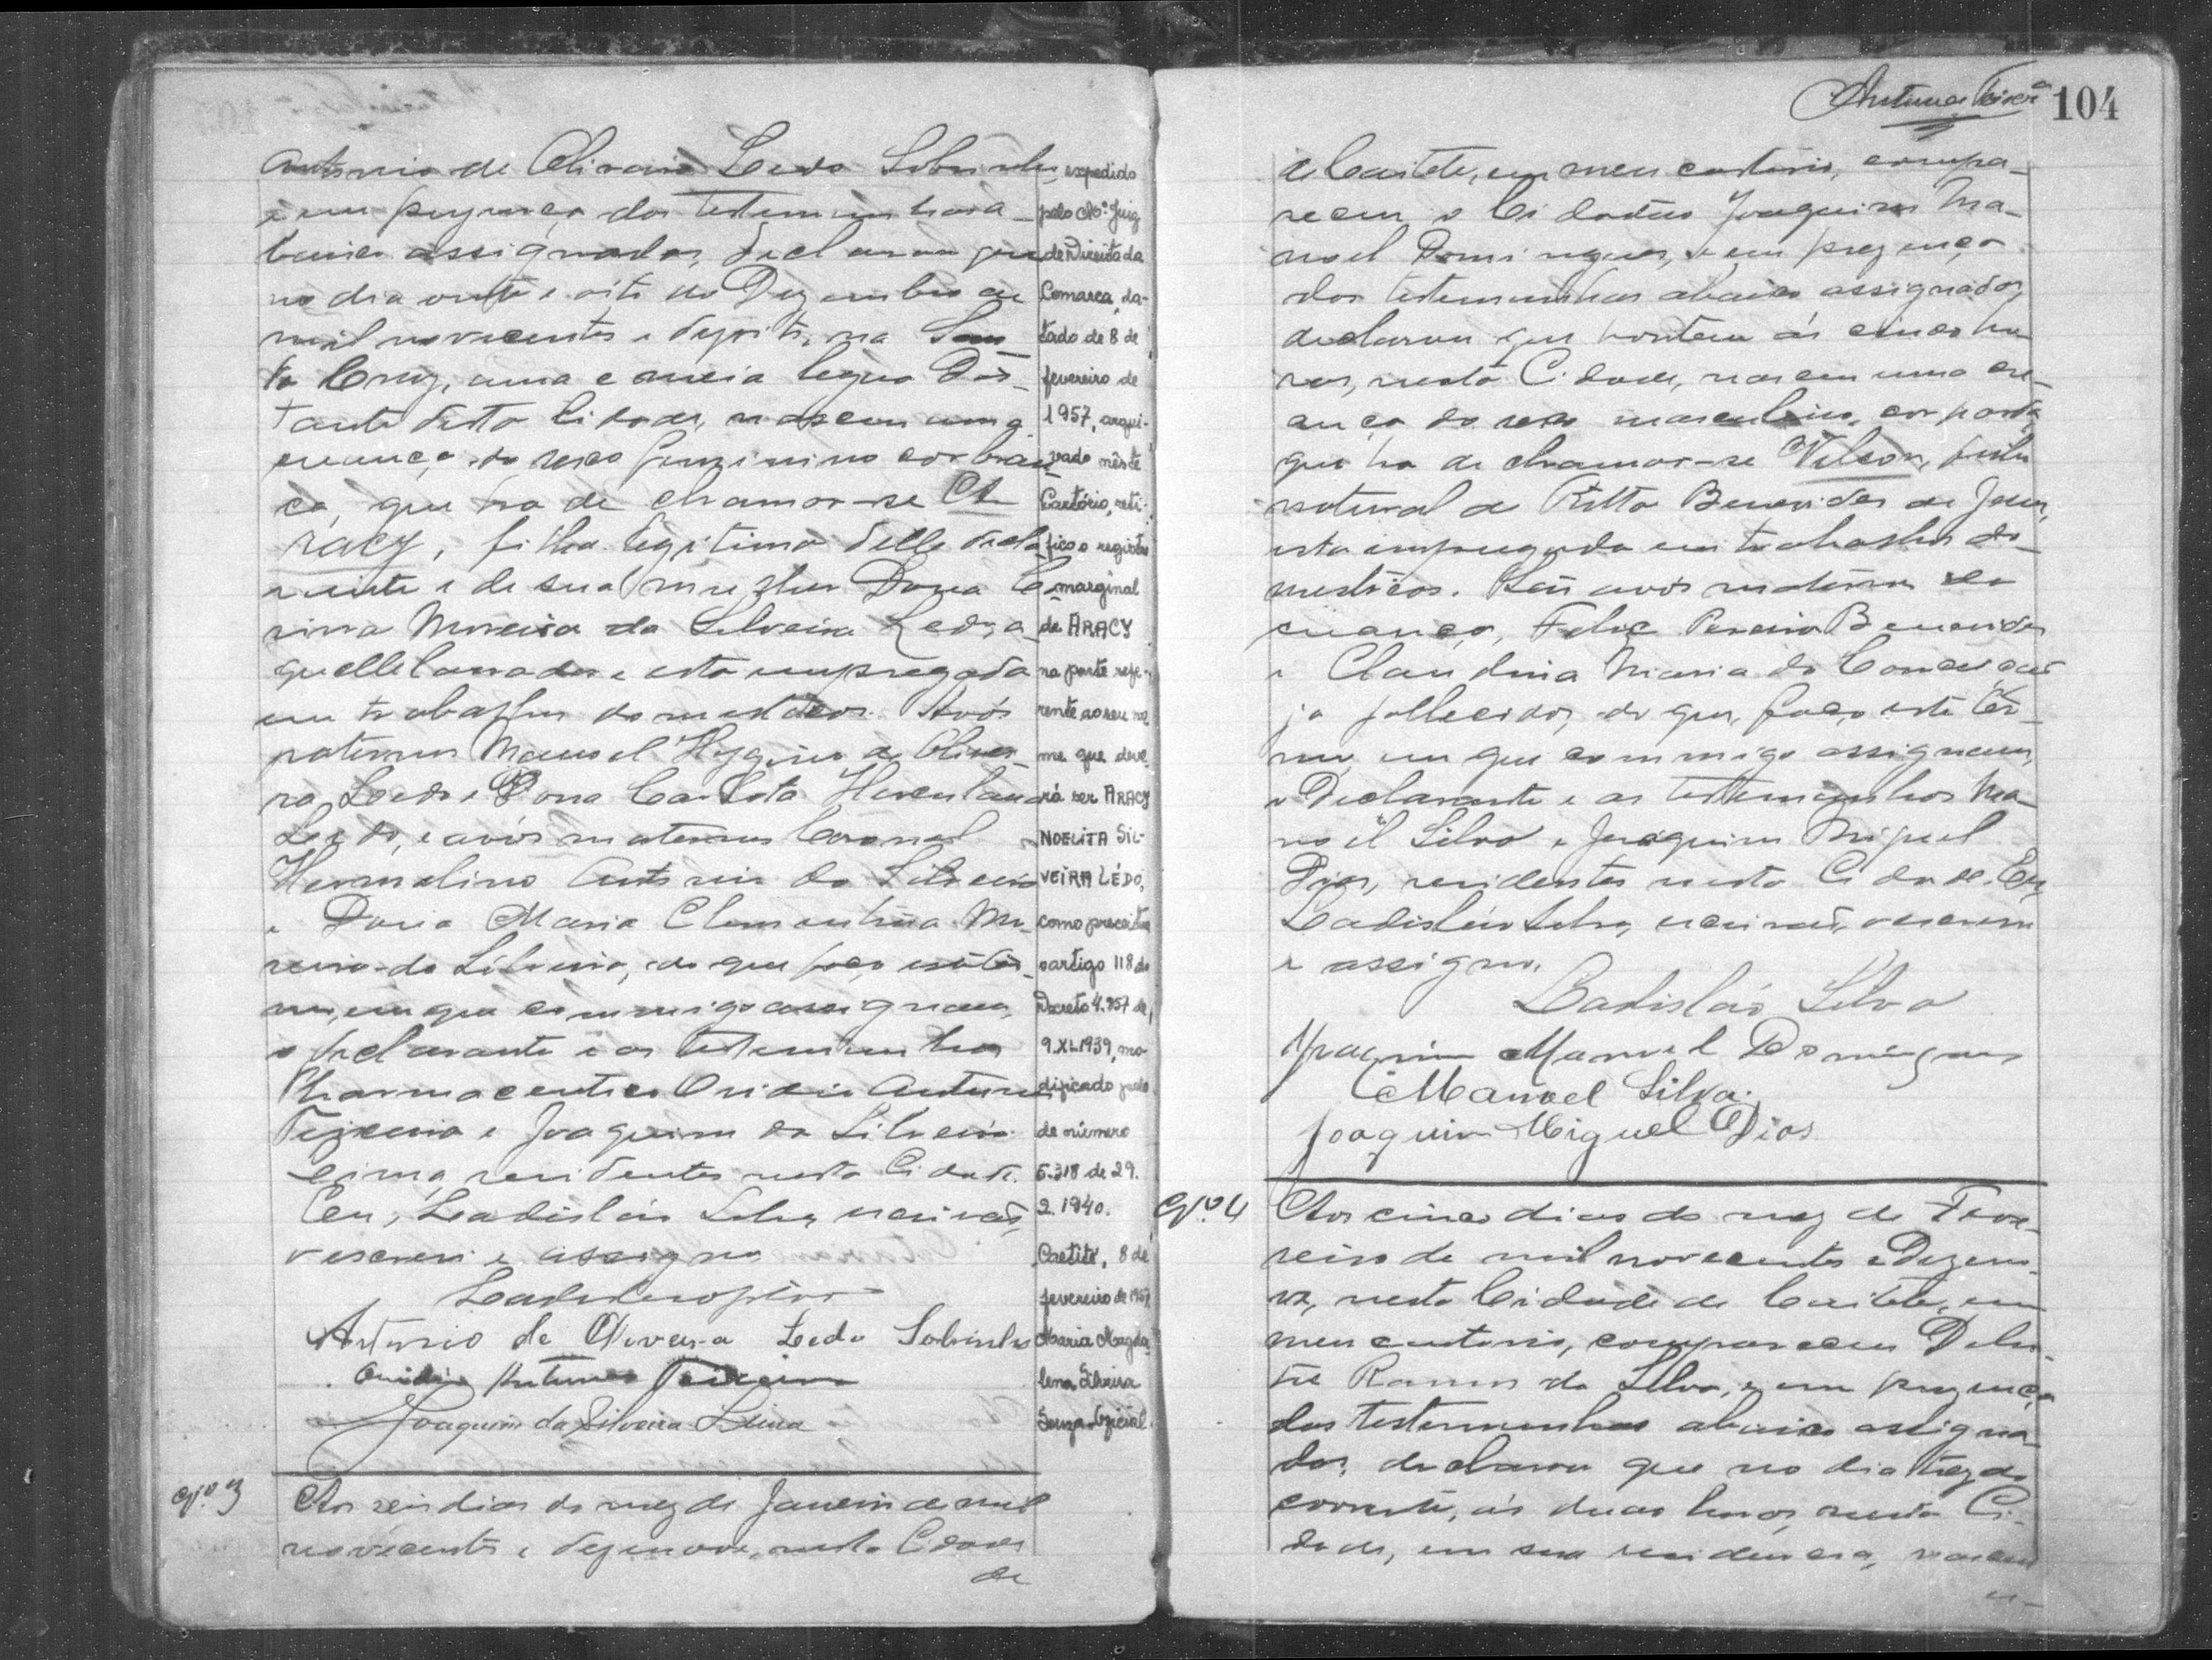 Antonio de Oliveira Ledo Sobrinho
e em prezença das testemunhas a-
baixo assignadas, declarou que
no dia vinte e oito de Dezembro de
mil novecentos e dezoito, na San-
ta Cruz, uma e meia legua dis-
tante desta Cidade, nasceu uma
creança do sexo feminino cor bran-
ca, que ha de chamar-se A-
racy, filha legitima delle decla-
rante e de sua mulher Dona
Moreira da Silveira Ledo, a-
quelle lavrador e esta empregada
em trabalhos domesticos. Avós
paternos Manoel Hygino de Olivei-
ra Ledo e Dona Carlota Herculana
Ledo, e avós maternos Coronel
Hermelino Antonio da Silveira
e Dona Maria Clementina Mo-
reira da Silveira, do que faço este ter-
mo, em que commigo assignam,
o declarante e as testemunhas
Pharmaceutico Ovidio Antunes
Teixeira e Joaquim da Silveira
Lima, residentes nesta Cidade.
Eu, Ladisláo Silva, escrivão,
o escrevi e assigno
Ladisláo Silva
Antonio de Oliveira Ledo Sobrinho
Ovidio Antunes Teixeira
Joaquim da Silveira Lima
expedido
pelo Juiz
de Direito da
Comarca, da-
tado de 8 de
fevereiro de
1957, arqui-
vado nêste
Cartório, reti-
fico o registro
marginal
de ARACY
na parte refe-
rente ao seu no-
me que deve-
rá ser ARACY
NOELITA SIL-
VEIRA LÉDO,
como preceitua
o artigo 118 do
Decreto 4.857 de
9.XI.1939, mo-
dificado pelo
de número
5.318 de 29.
2.1940.
Caetité, 8 de
fevereiro de 1957
Maria Magda-
lena Silveira
Souza Oficial.
Nº 3
Aos seis dias do mez de Janeiro de mil
novecentos e dezenove, nesta Cidade
de
Antunes Teixeira 104
de Caiteté, em meu cartorio, compa-
receu o Cidadão Joaquim Ma-
noel Domingues, e em prezença
das testemunhas abaixo assignadas,
declarou que hontem ás cinco ho-
ras, nesta Cidade, nasceu uma cre-
ança do sexo masculino, cor parda,
que ha de chamar-se Nelson, filho
natural de Ritta Benevides de Jesus,
esta empregada em trabalhos do-
mesticos. São avós maternos da
creança, Felix Pereira Benevides
e Claudina Maria da Conceição
já fallecidos, do que, faço este ter-
mo, em que commigo assignam,
o Declarante e as testemunhas Ma-
noel Silva e Joaquim Miguel
Dias, residentes nesta Cidade. Eu,
Ladisláo Silva, escrivão, o escrevi
e assigno.
Ladisláo Silva
Joaquim Manoel Domingues
Manoel Silva.
Joaquim Miguel Dias
Nº 4
Aos cinco dias do mez de Feve-
reiro de mil novecentos e dezeno-
ve, nesta Cidade de Caiteté, em
meu cartorio, compareceu
Ramos da Silva, e em prezença
das testemunhas abaixo assigna-
das, declarou que no dia trez do
corrente, ás duas horas, nesta Ci-
dade, em sua residencia, nasceu
u-